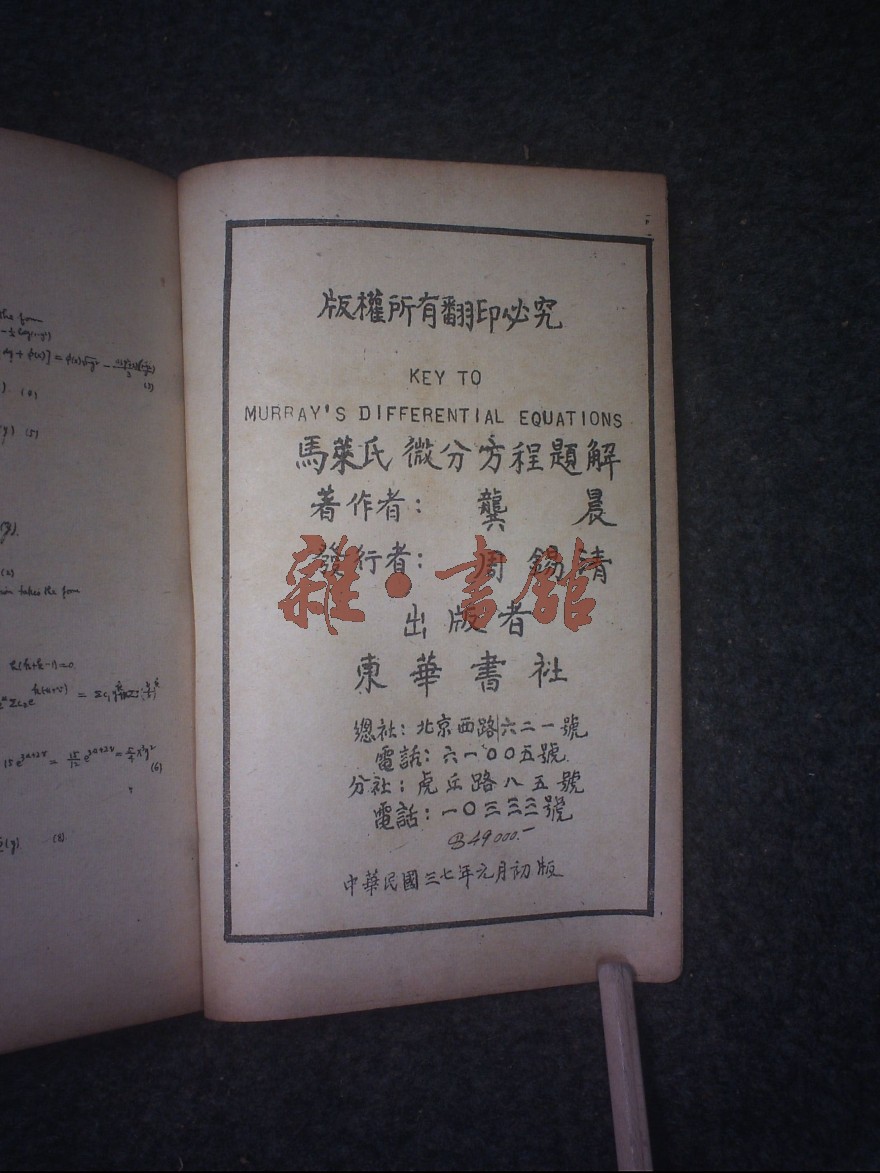 the form
(3)
(5)
(2)
takes the form
(6)
(8)
版權所有翻印必究
KEY TO
MURRAY'S DIFFERENTIAL EQUATIONS
馬萊氏微分方程題解
著作者: 龔晨
發行者: 周錫清
雜·書館
出版者
東華書社
總社: 北京西路六二一號
電話: 六一〇〇五號
分社: 虎丘路八五號
電話: 一〇三三三號
49000.-
中華民國三七年元月初版